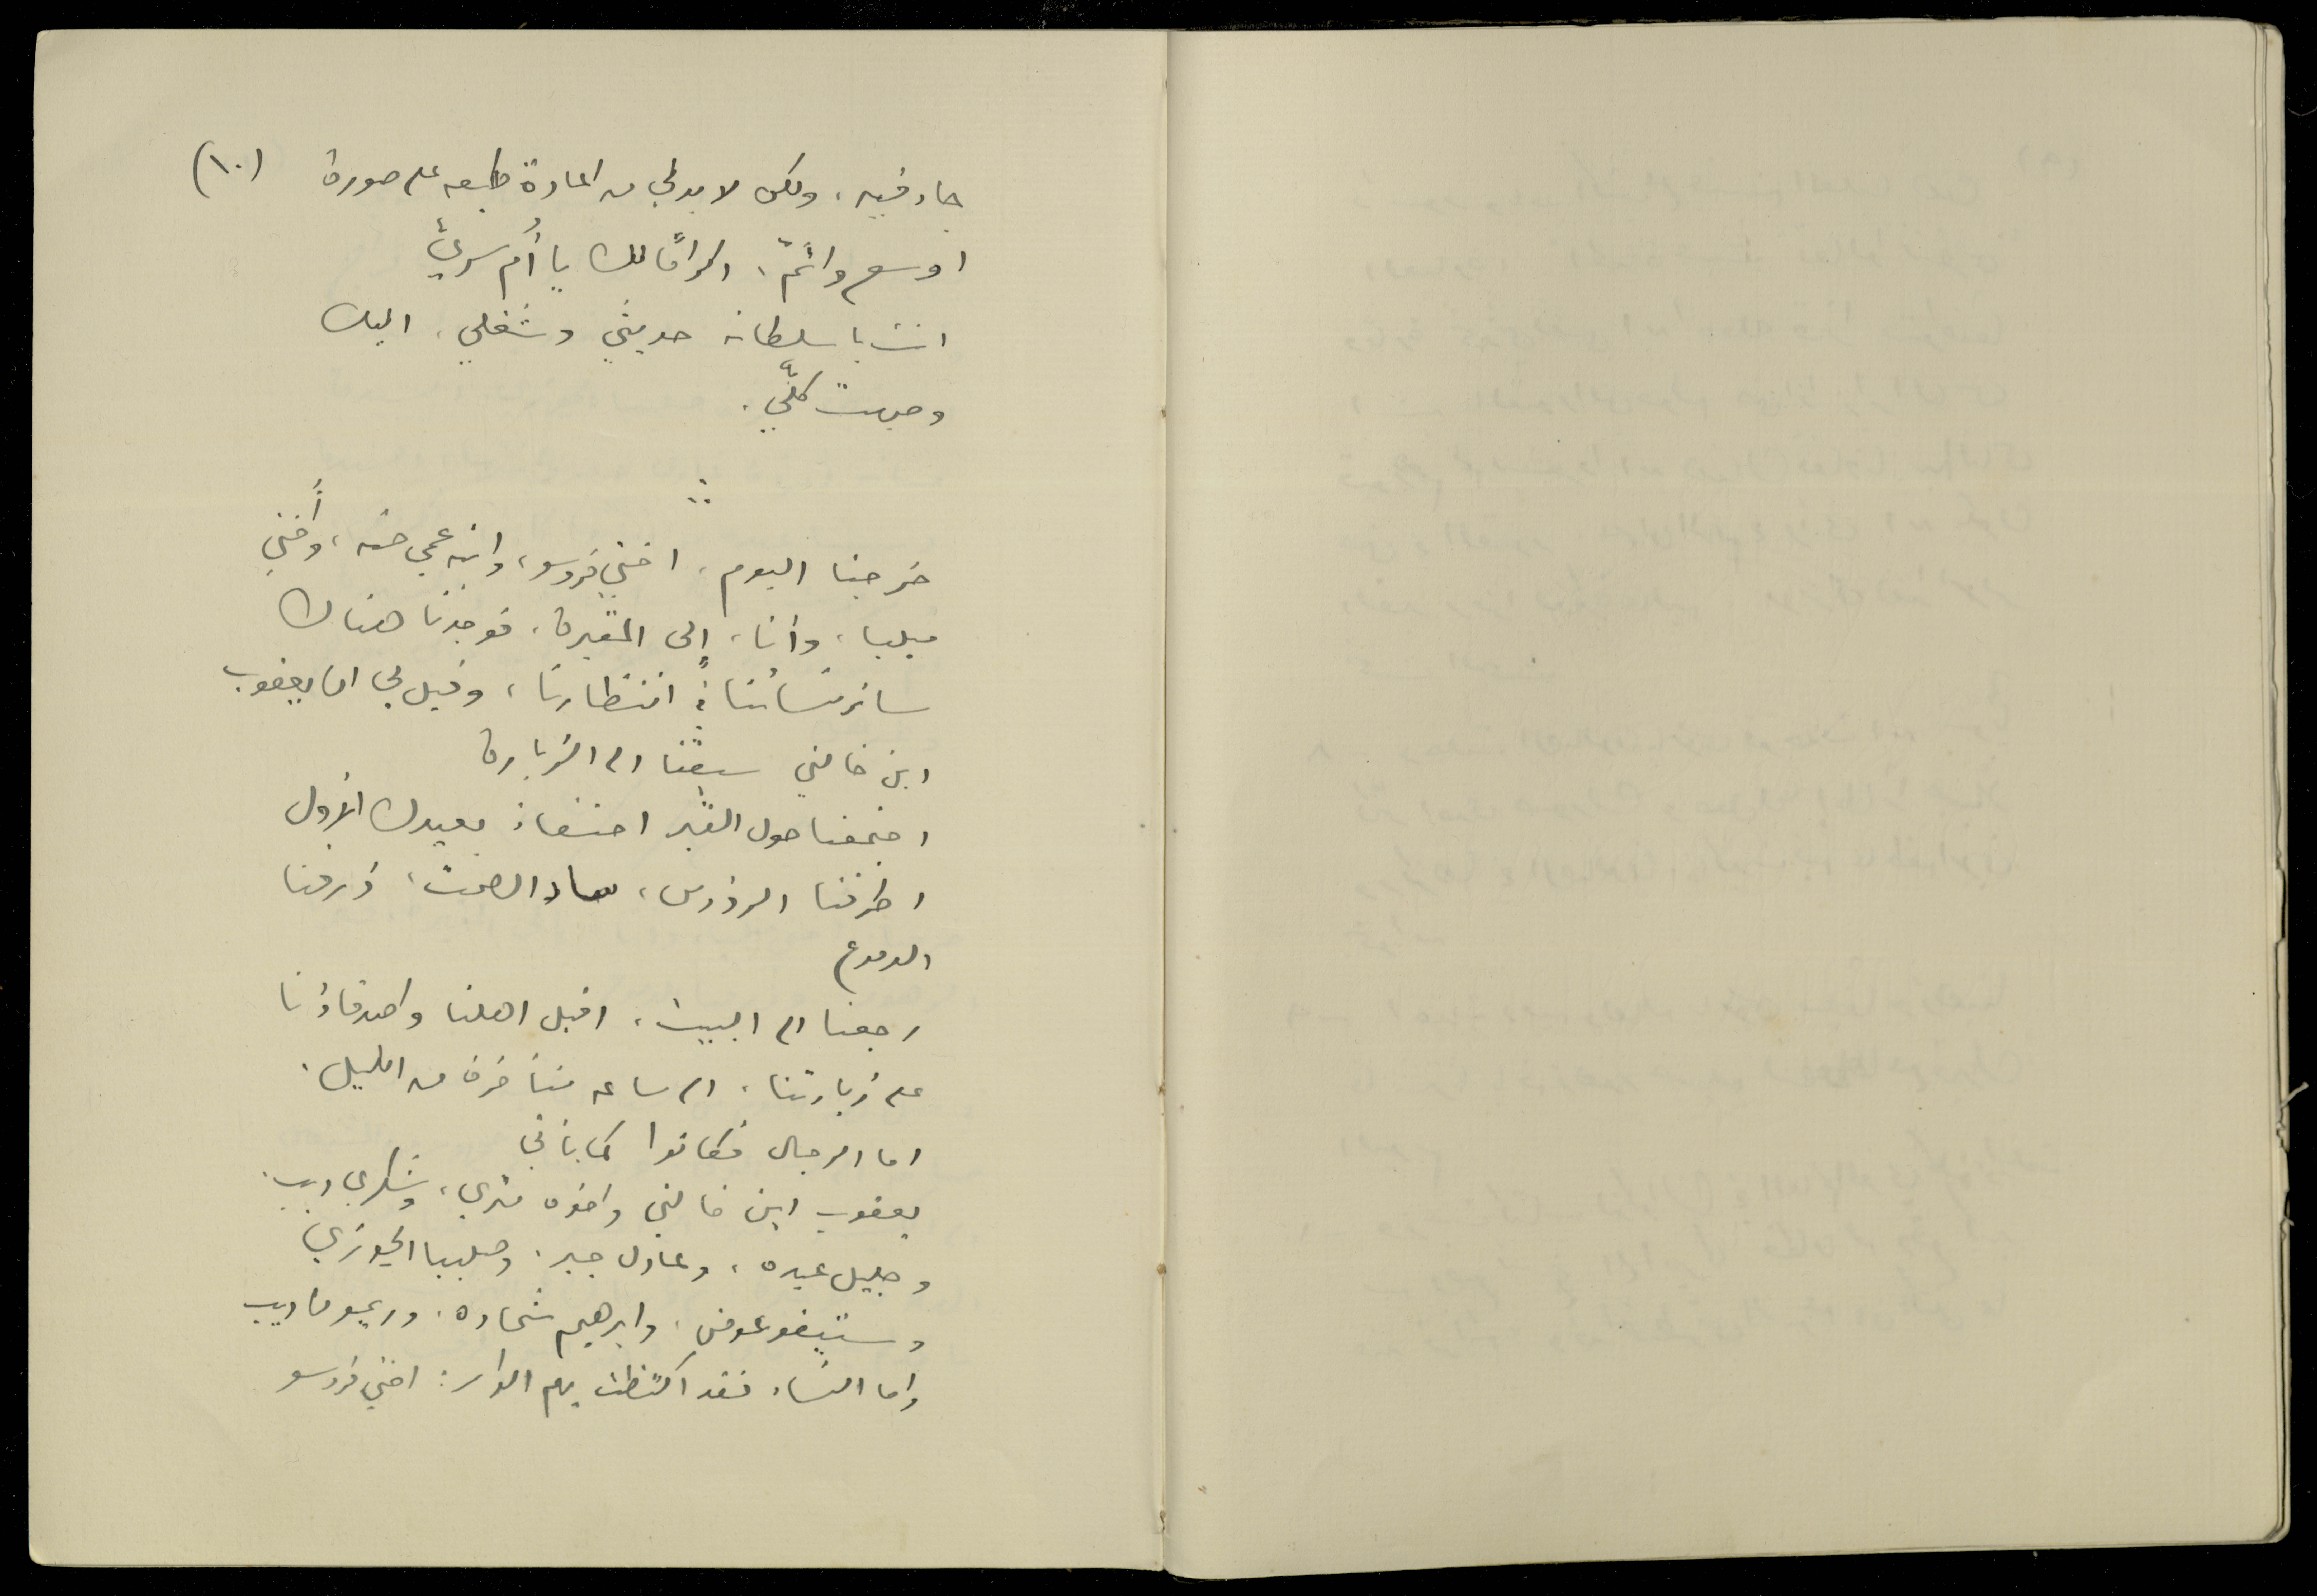 (١٠)
جاء فيه، ولكن لا بد لي من اعادة طبعه على صورة
اوسع واتمّ، اكرامًا لك يا أم سري
انت يا سلطانه حديثي وشغلي، اليك
وجهت كلّي.
خرجنا اليوم، اختي فروسو، وابنة عمي حنه، وأختي
ميليا، وأنا، إلى المقبرة، فوجدنا هناك
سائر نسائنا في انتظارنا، وقيل لي ان يعقوب
ابن خالتي سبقنا الى الزيارة
اجتمعنا حول القبر احتفاء بعيدك الأول
اطرقنا الرؤوس، ساد الصمت، ذرفنا
الدموع
رجعنا الى البيت، اقبل اهلنا واصدقاؤنا
على زيارتنا، الى ساعة متأخرة من الليل.
اما الرجال فكانوا كما يأتي
يعقوب ابن خالتي واخوه متري، وشكري ديب.
وجليل عبده، وعادل جبر، وصليبا الجوزي
وستيفو عوض، وابرهيم شحاده، وريمون ديب
واما النساء فقد اكتظت بهم الدار: اختي فروسو